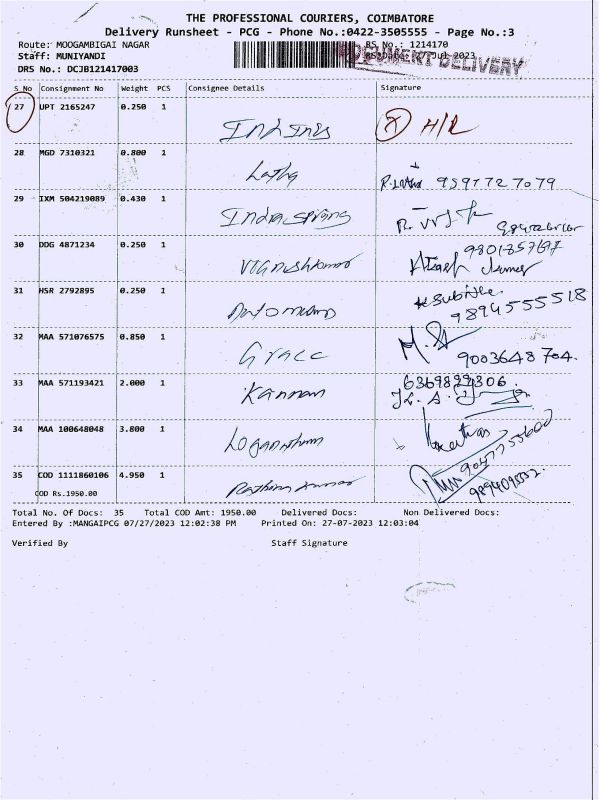 THE PROFESSIONAL COURIERS, COIMBATORE
Delivery Runsheet - PCG - Phone No.:0422-3505555 - Page No.:3
Route: MOOGAMBIGAI NAGAR RS No.: 1214170
Staff: MUNIYANDI 27 Jul 2023
DRS No.: DCJB121417003 DELIVERY
S No Consignment No Weight PCS Consignee Details Signature
27 UPT 2165247 0.250 1 (X) H/R
28 MGD 7310321 0.800 1 Latha 9597727079
29 IXM 504219089 0.430 1 Indra springs
30 DDG 4871234 0.250 1 Vigneshkumar
31 HSR 2792895 0.250 1 9894555518
32 MAA 571076575 0.850 1 Grace 9003648704.
33 MAA 571193421 2.000 1 Kannan
34 MAA 100648048 3.800 1
35 COD 1111860106 4.950 1
COD Rs.1950.00
Total No. Of Docs: 35 Total COD Amt: 1950.00 Delivered Docs: Non Delivered Docs:
Entered By :MANGAIPCG 07/27/2023 12:02:38 PM Printed On: 27-07-2023 12:03:04
Verified By Staff Signature